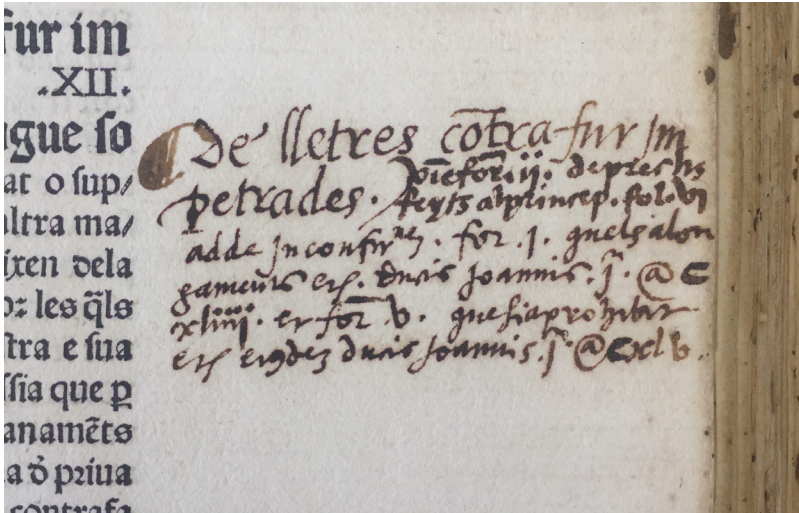 fur im
.XII.
gue so
at o sup/
altra ma/
ixen dela
oz les q̃ls
stra e sua
ssia que p
anamẽts
a d̕ priua
contrafa
De lletres cõtra fur Im
petrades. viẽ for. ij. de prechs
feyts al princep. fol. vj
adde in confir. for. j. quels alon
gaments ducis Joannis. j. @ C
xliiij. et for v. que sia prohibit
ducis Joannis. j @ Cxlv.